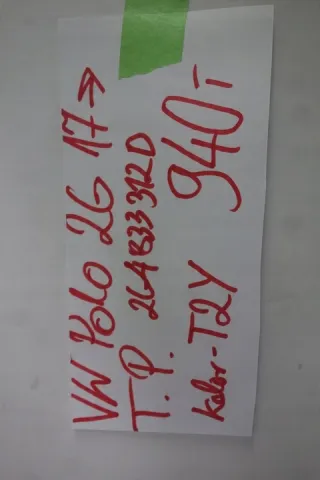 VW Polo 2G 17→
T.P. 2G4833312D
kolor-T2Y 940,-